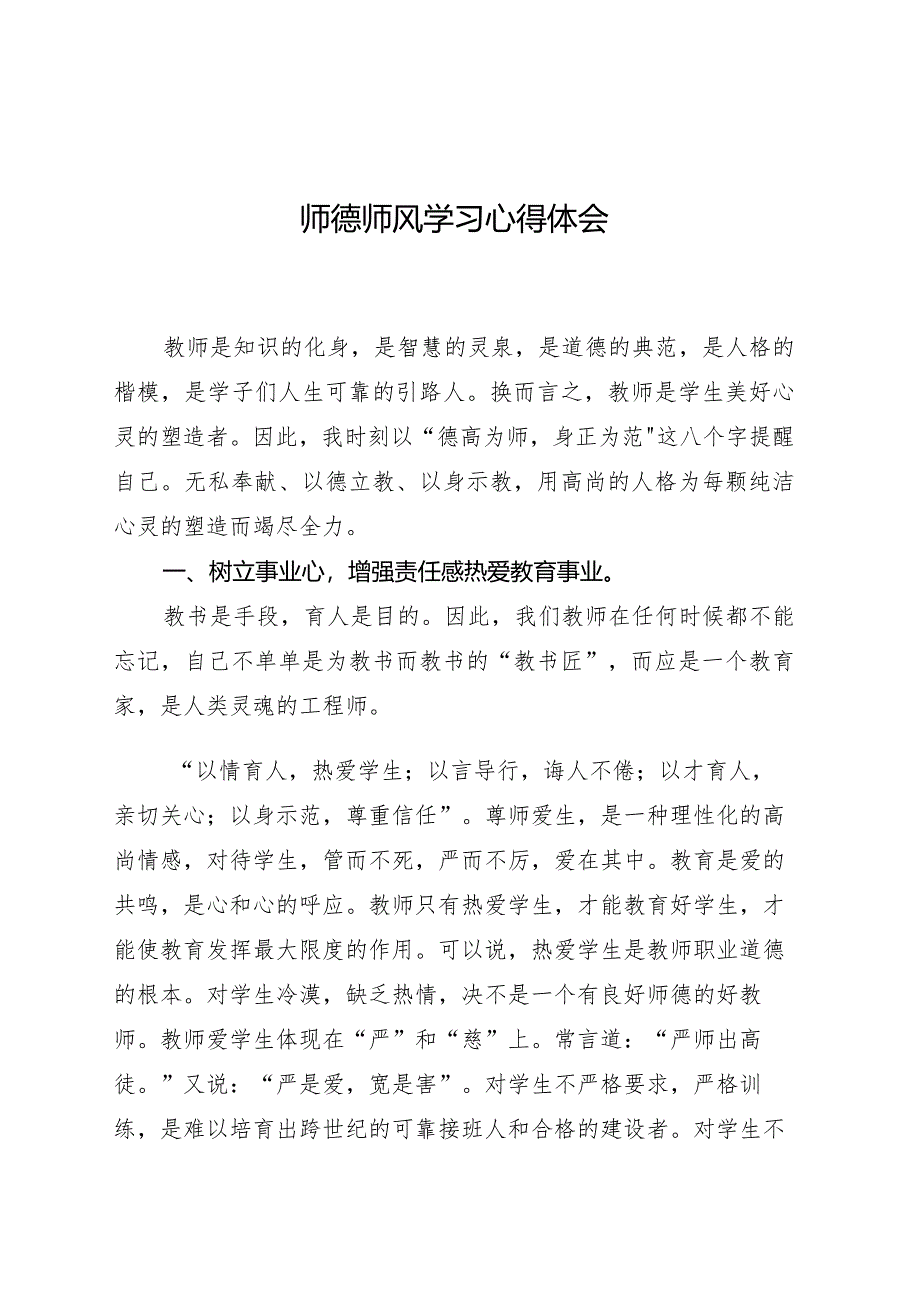 师德师风学习心得体会
教师是知识的化身，是智慧的灵泉，是道德的典范，是人格的
楷模，是学子们人生可靠的引路人。换而言之，教师是学生美好心
灵的塑造者。因此，我时刻以“德高为师，身正为范"这八个字提醒
自己。无私奉献、以德立教、以身示教，用高尚的人格为每颗纯洁
心灵的塑造而竭尽全力。
一、树立事业心，增强责任感热爱教育事业。
教书是手段，育人是目的。因此，我们教师在任何时候都不能
忘记，自己不单单是为教书而教书的“教书匠”，而应是一个教育
家，是人类灵魂的工程师。
“以情育人，热爱学生；以言导行，诲人不倦；以才育人，
亲切关心；以身示范，尊重信任”。尊师爱生，是一种理性化的高
尚情感，对待学生，管而不死，严而不厉，爱在其中。教育是爱的
共鸣，是心和心的呼应。教师只有热爱学生，才能教育好学生，才
能使教育发挥最大限度的作用。可以说，热爱学生是教师职业道德
的根本。对学生冷漠，缺乏热情，决不是一个有良好师德的好教
师。教师爱学生体现在“严”和“慈”上。常言道：“严师出高
徒。”又说：“严是爱，宽是害”。对学生不严格要求，严格训
练，是难以培育出跨世纪的可靠接班人和合格的建设者。对学生不